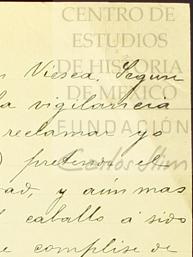 CENTRO DE
ESTUDIOS
DE HISTORIA
DE MÉXICO
FUNDACIÓN
Carlos Slim
n Viesca. Segun
la vigilancia
reclamar yo
) pretende el
dad, y aún mas
l caballo a sido
e complise de